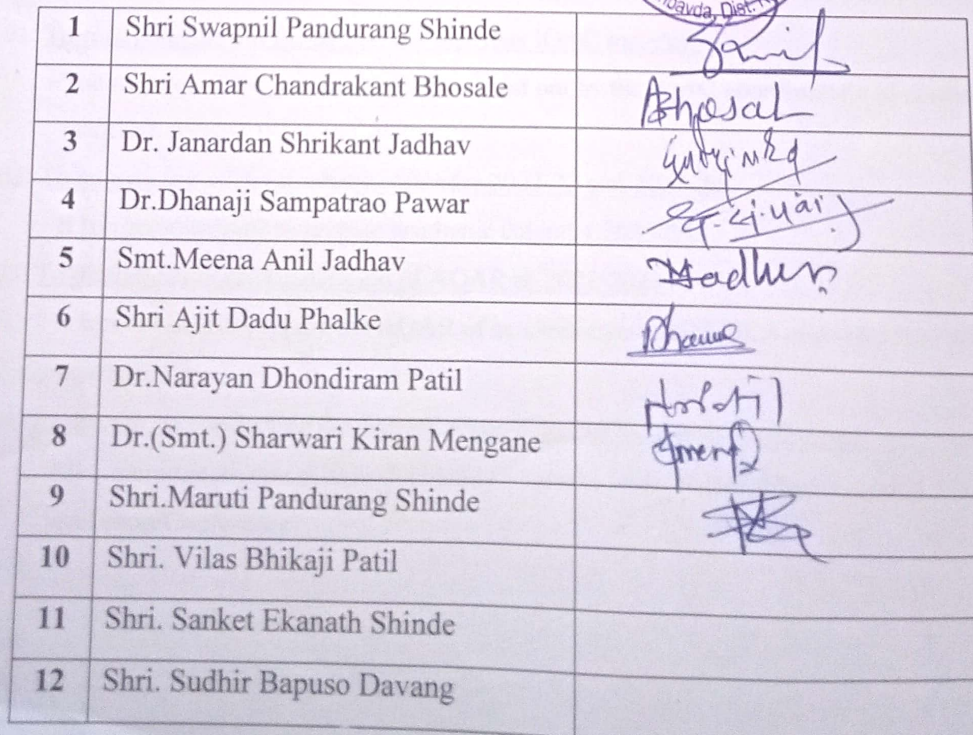 1 Shri Swapnil Pandurang Shinde
2 Shri Amar Chandrakant Bhosale
3 Dr. Janardan Shrikant Jadhav
4 Dr.Dhanaji Sampatrao Pawar
5 Smt.Meena Anil Jadhav
6 Shri Ajit Dadu Phalke
7 Dr.Narayan Dhondiram Patil
8 Dr.(Smt.) Sharwari Kiran Mengane
9 Shri.Maruti Pandurang Shinde
10 Shri. Vilas Bhikaji Patil
11 Shri. Sanket Ekanath Shinde
12 Shri. Sudhir Bapuso Davang